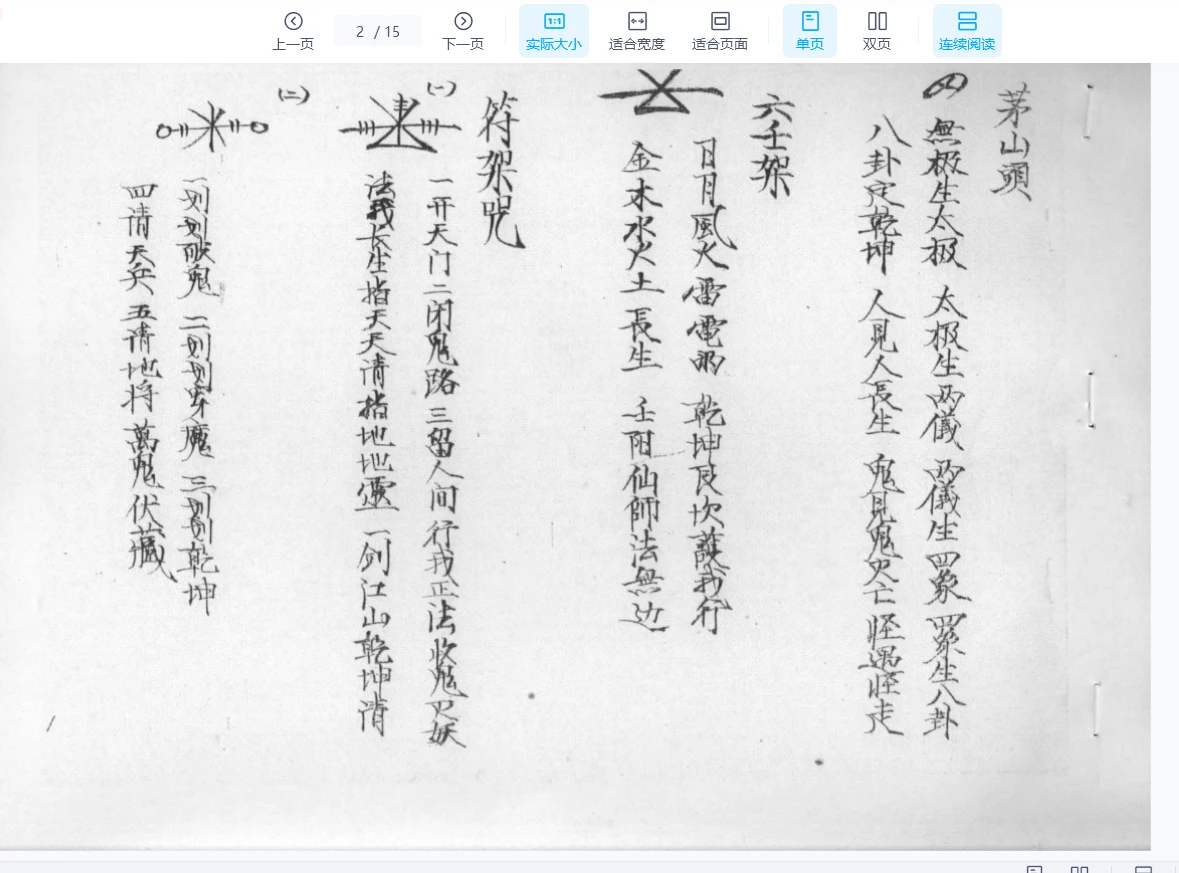 上一页
2 / 15
下一页
实际大小
适合宽度
适合页面
单页
双页
连续阅读
茅山頭
無极生太极 太极生两儀 两儀生四象 四象生八卦
八卦定乾坤 人見人長生 鬼見鬼灭亡 怪遇怪走
六壬架
日月風火雷電 乾坤艮坎護我行
金木水火土長生 壬阳仙師法無边
符架咒
(一)
一开天门二闭鬼路三留人间行我正法收鬼灭妖
法我长生指天天清指地地靈一剑江山乾坤清
(二)
一划划破鬼 二划划穿魔 三划划乾坤
四请天兵 五请地将 萬鬼伏藏